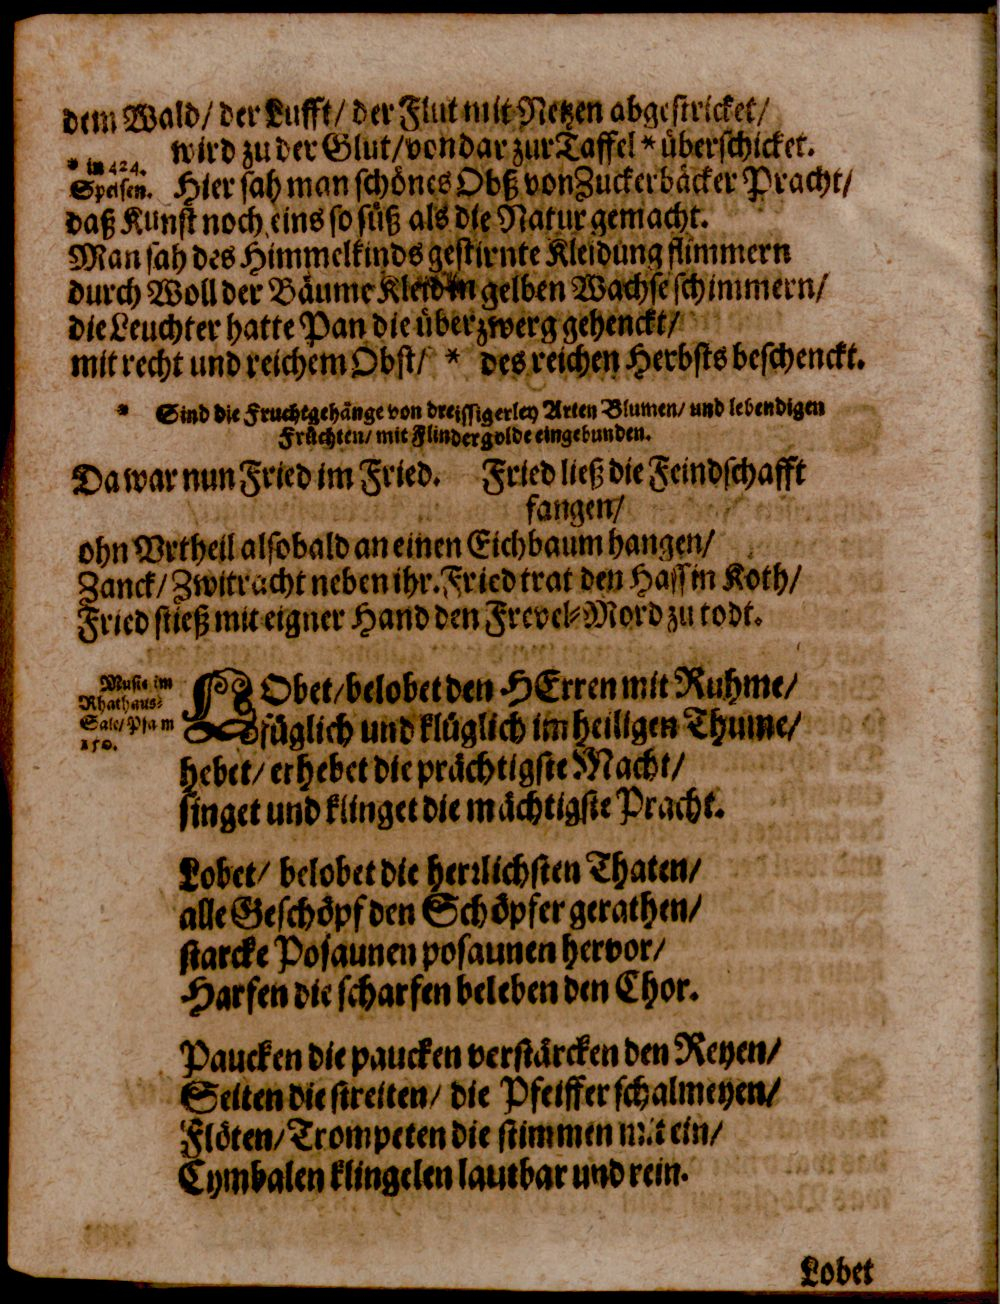 dem Wald/ der Lufft/ der Flut mit Netzen abgestricket/
wird zu der Glut/ von dar zur Taffel * überschicket.
* in 424.
Speisen.
Hier sah man schönes Obß von Zuckerbäcker Pracht/
daß Kunst noch eins so süß als die Natur gemacht.
Man sah des Himmelkinds gestirnte Kleidung flimmern
durch Woll der Bäume Kleid in gelben Wachse schimmern/
die Leuchter hatte Pan die überzwerg gehenckt/
mit recht und reichem Obst/ * des reichen Herbsts beschenckt.
* Sind die Fruchtgehänge von dreissigerley Arten Blumen/ und lebendigen
Früchten/ mit Flindergolde eingebunden.
Da war nun Fried im Fried. Fried ließ die Feindschafft
fangen/
ohn Vrtheil alsobald an einen Eichbaum hangen/
Zanck/ Zwitracht neben ihr. Fried trat den Hass in Koth/
Fried stieß mit eigner Hand den Frevel-Mord zu todt.
Music im
Rhathaus-
Sale/ Psa m
150.
LObet/ belobet den HErren mit Ruhme/
füglich und klüglich im heiligen Thume/
hebet/ erhebet die prächtigste Macht/
singet und klinget die mächtigste Pracht.
Lobet/ belobet die herrlichsten Thaten/
alle Geschöpf den Schöpfer gerathen/
starcke Posaunen posaunen hervor/
Harfen die scharfen beleben den Chor.
Paucken die paucken verstärcken den Reyen/
Seiten die streiten/ die Pfeiffer schalmeyen/
Flöten/ Trompeten die stimmen mit ein/
Cymbalen klingelen lautbar und rein.
Lobet